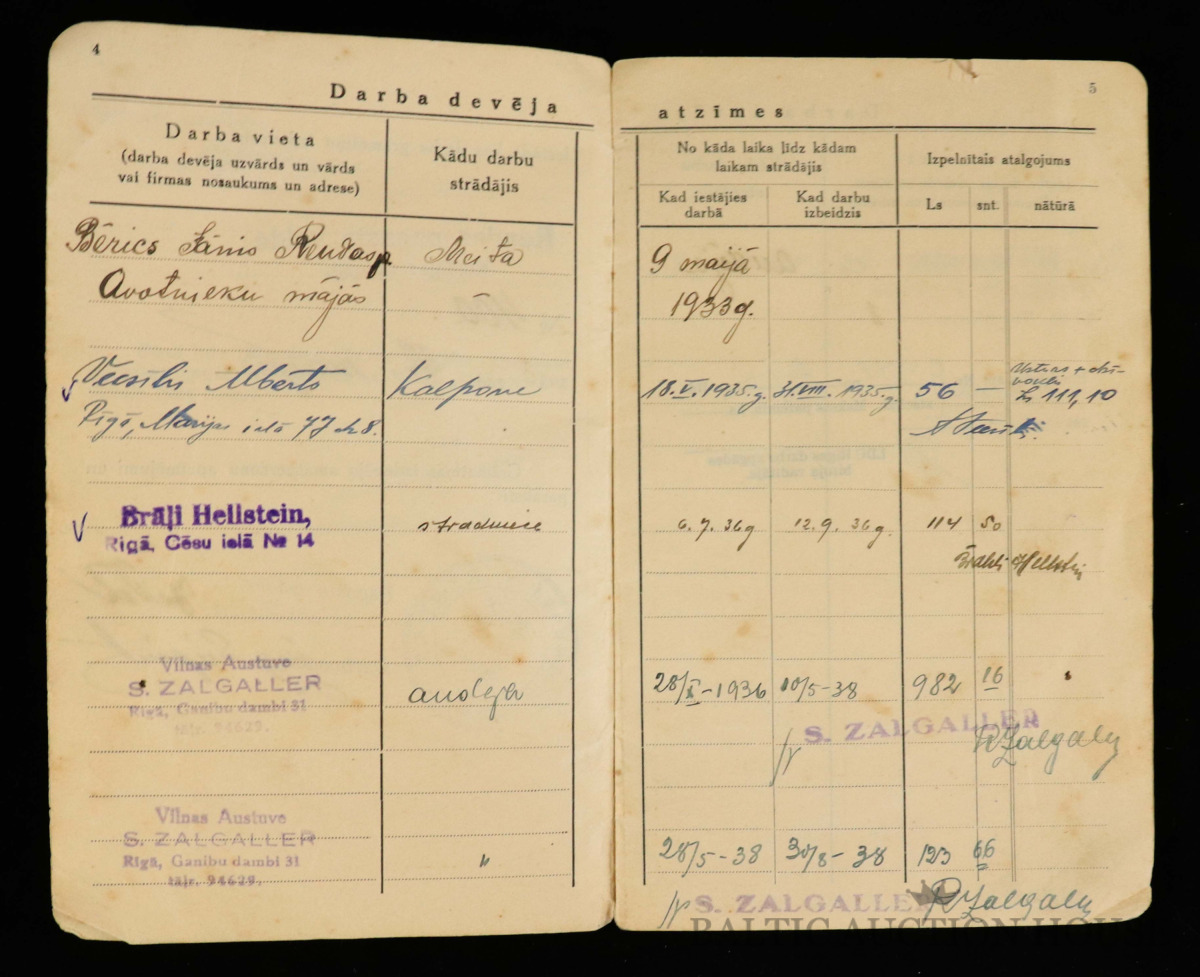 4
Darba devēja
Darba vieta
(darba devēja uzvārds un vārds
vai firmas nosaukums un adrese)
Kādu darbu
strādājis
Bērics Jānis
Meita
Avotnieku mājās
–
Alberts
Kalpone
Rīgā, Marijas ielā 77
Brāļi Hellstein,
Rīgā, Cēsu ielā № 14
strādniece
Vilnas Austuve
S. ZALGALLER
Rīgā, Ganibu dambi 31
tālr. 24629.
audēja
Vilnas Austuve
S. ZALGALLER
Rīgā, Ganibu dambi 31
tālr. 24629.
"
5
atzīmes
No kāda laika līdz kādam
laikam strādājis
Izpelnītais atalgojums
Kad iestājies
darbā
Kad darbu
izbeidzis
Ls
snt.
nātūrā
9 maijā
1933g.
18.V.1935.g. 31.VIII.1935.g. 56 —
Ls 111,10
6. 7. 36g 12. 9. 36g. 114 50
Brāļi Hellstein
28/X-1936 10/5-38 982 16
S. ZALGALLER
Zalgaller
28/5-38 30/8-38 123 66
S. ZALGALLER
Zalgaller
BALTIC AUCTION HOU